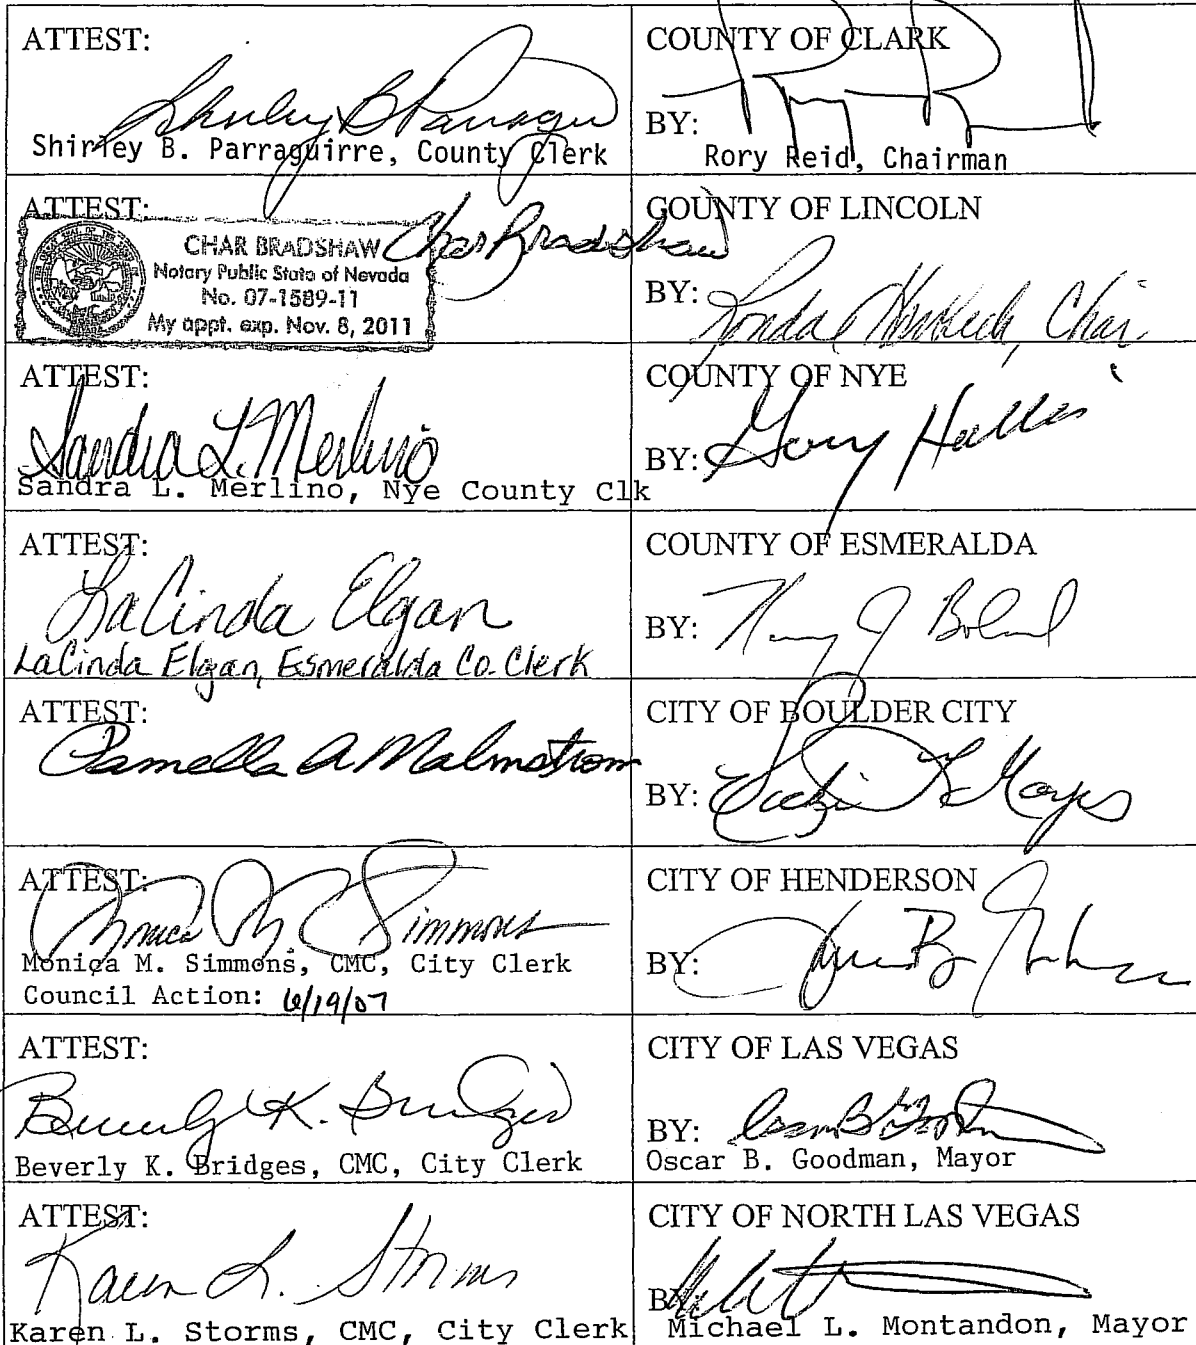 ATTEST:
Shirley B Parraguirre
Shirley B. Parraguirre, County Clerk
COUNTY OF CLARK
BY:
Rory Reid, Chairman
ATTEST:
CHAR BRADSHAW
Notary Public State of Nevada
No. 07-1589-11
My appt. exp. Nov. 8, 2011
Char Bradshaw
COUNTY OF LINCOLN
BY: Ronda Chair
ATTEST:
Sandra L. Merlino
Sandra L. Merlino, Nye County Clk
COUNTY OF NYE
BY: Gary Hollis
ATTEST:
LaCinda Elgan
LaCinda Elgan, Esmeralda Co. Clerk
COUNTY OF ESMERALDA
BY: J Boland
ATTEST:
Pamella A Malmstrom
CITY OF BOULDER CITY
BY:
ATTEST:
Monica M. Simmons
Monica M. Simmons, CMC, City Clerk
Council Action: 6/19/07
CITY OF HENDERSON
BY:
ATTEST:
Beverly K. Bridges
Beverly K. Bridges, CMC, City Clerk
CITY OF LAS VEGAS
BY: Oscar B Goodman
Oscar B. Goodman, Mayor
ATTEST:
Karen L. Storms
Karen L. Storms, CMC, City Clerk
CITY OF NORTH LAS VEGAS
BY:
Michael L. Montandon, Mayor